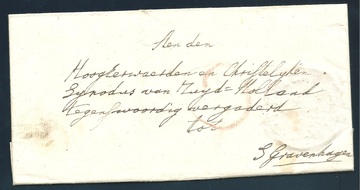 Aen den
Hoog Eerwaerden en Christelyken
Synodus van Zuyd=Holland
tegenswoordig vergaderd
tot
S Gravenhagen